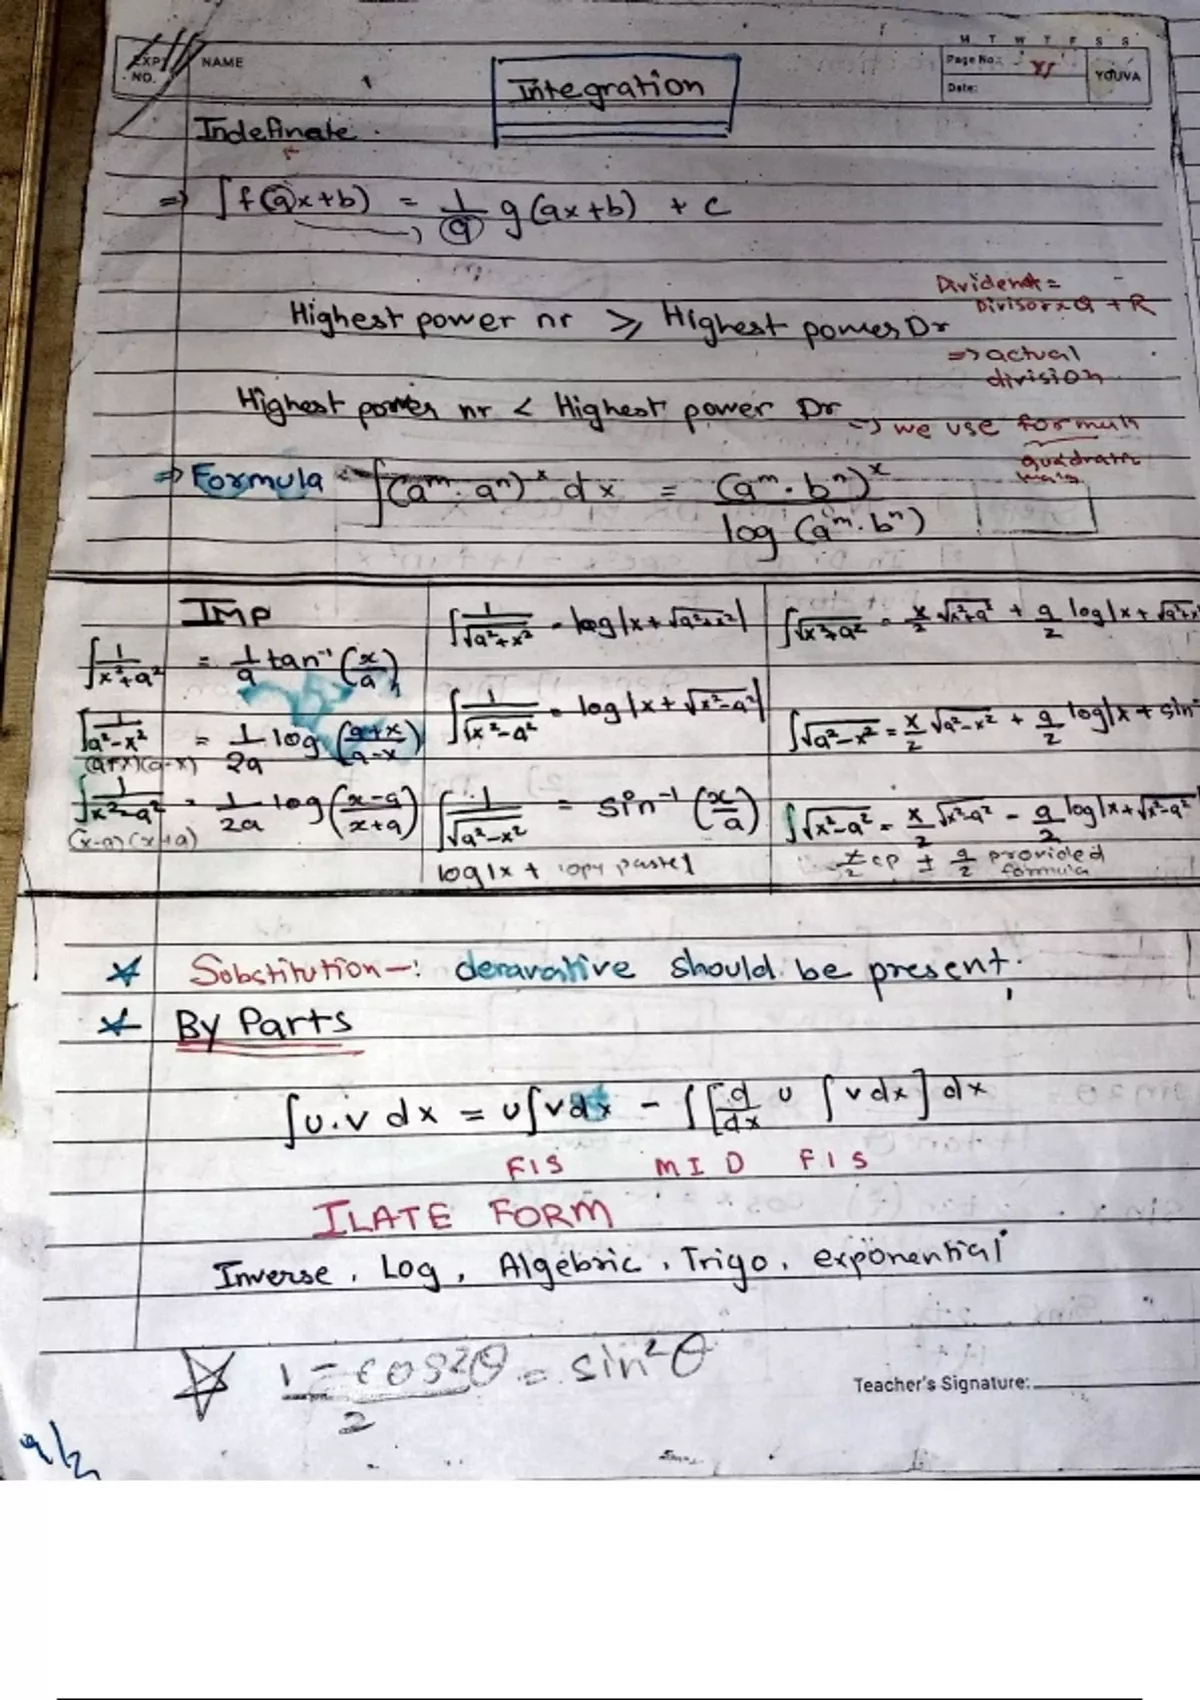 M T W T F S S
EXP. NO. NAME Page No.: YOUVA
Date:
Integration
Indefinate.
⇒ ∫f(ax+b) = 1/a g(ax+b) + c
Dividend =
Divisor x Q + R
Highest power nr ≥ Highest power Dr
⇒ actual
division
Highest power nr < Highest power Dr
→ we use formula
⇒ Formula ∫(aᵐ. aⁿ)ˣ dx = (aᵐ. bⁿ)ˣ / log (aᵐ. bⁿ)
IMP
∫1/x²+a² = 1/a tan⁻¹ (x/a)
∫1/a²-x² = 1/2a log (a+x/a-x)
(a+x)(a-x)
∫1/x²-a² = 1/2a log (x-a/x+a)
(x-a)(x+a)
∫1/√a²+x² = log|x+√a²+x²|
∫1/√x²-a² = log|x+√x²-a²|
∫1/√a²-x² = sin⁻¹ (x/a)
log|x + copy paste|
∫√x²+a² = x/2 √x²+a² + a/2 log|x+√a²+x
∫√a²-x² = x/2 √a²-x² + a/2 log|x + sin⁻
∫√x²-a² = x/2 √x²-a² - a/2 log|x+√x²-a²
x/2 cp ± a/2 provided
formula
Sobstitution-: deravative should be present.
By Parts
∫u.v dx = u∫vdx - ∫[d/dx u ∫vdx] dx
FIS MID FIS
ILATE FORM
Inverse, Log, Algebric, Trigo, exponential
1-cos2θ/2 = sin²θ
Teacher's Signature:
a/2